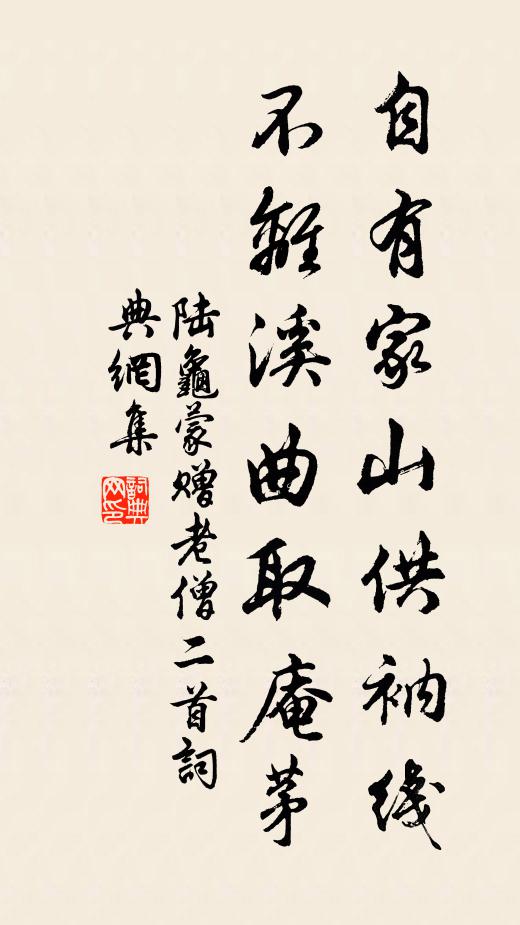 自有家山供衲线
不離溪曲取庵茅
陆龜蒙赠老僧二首詞
典網集
詞典
网印